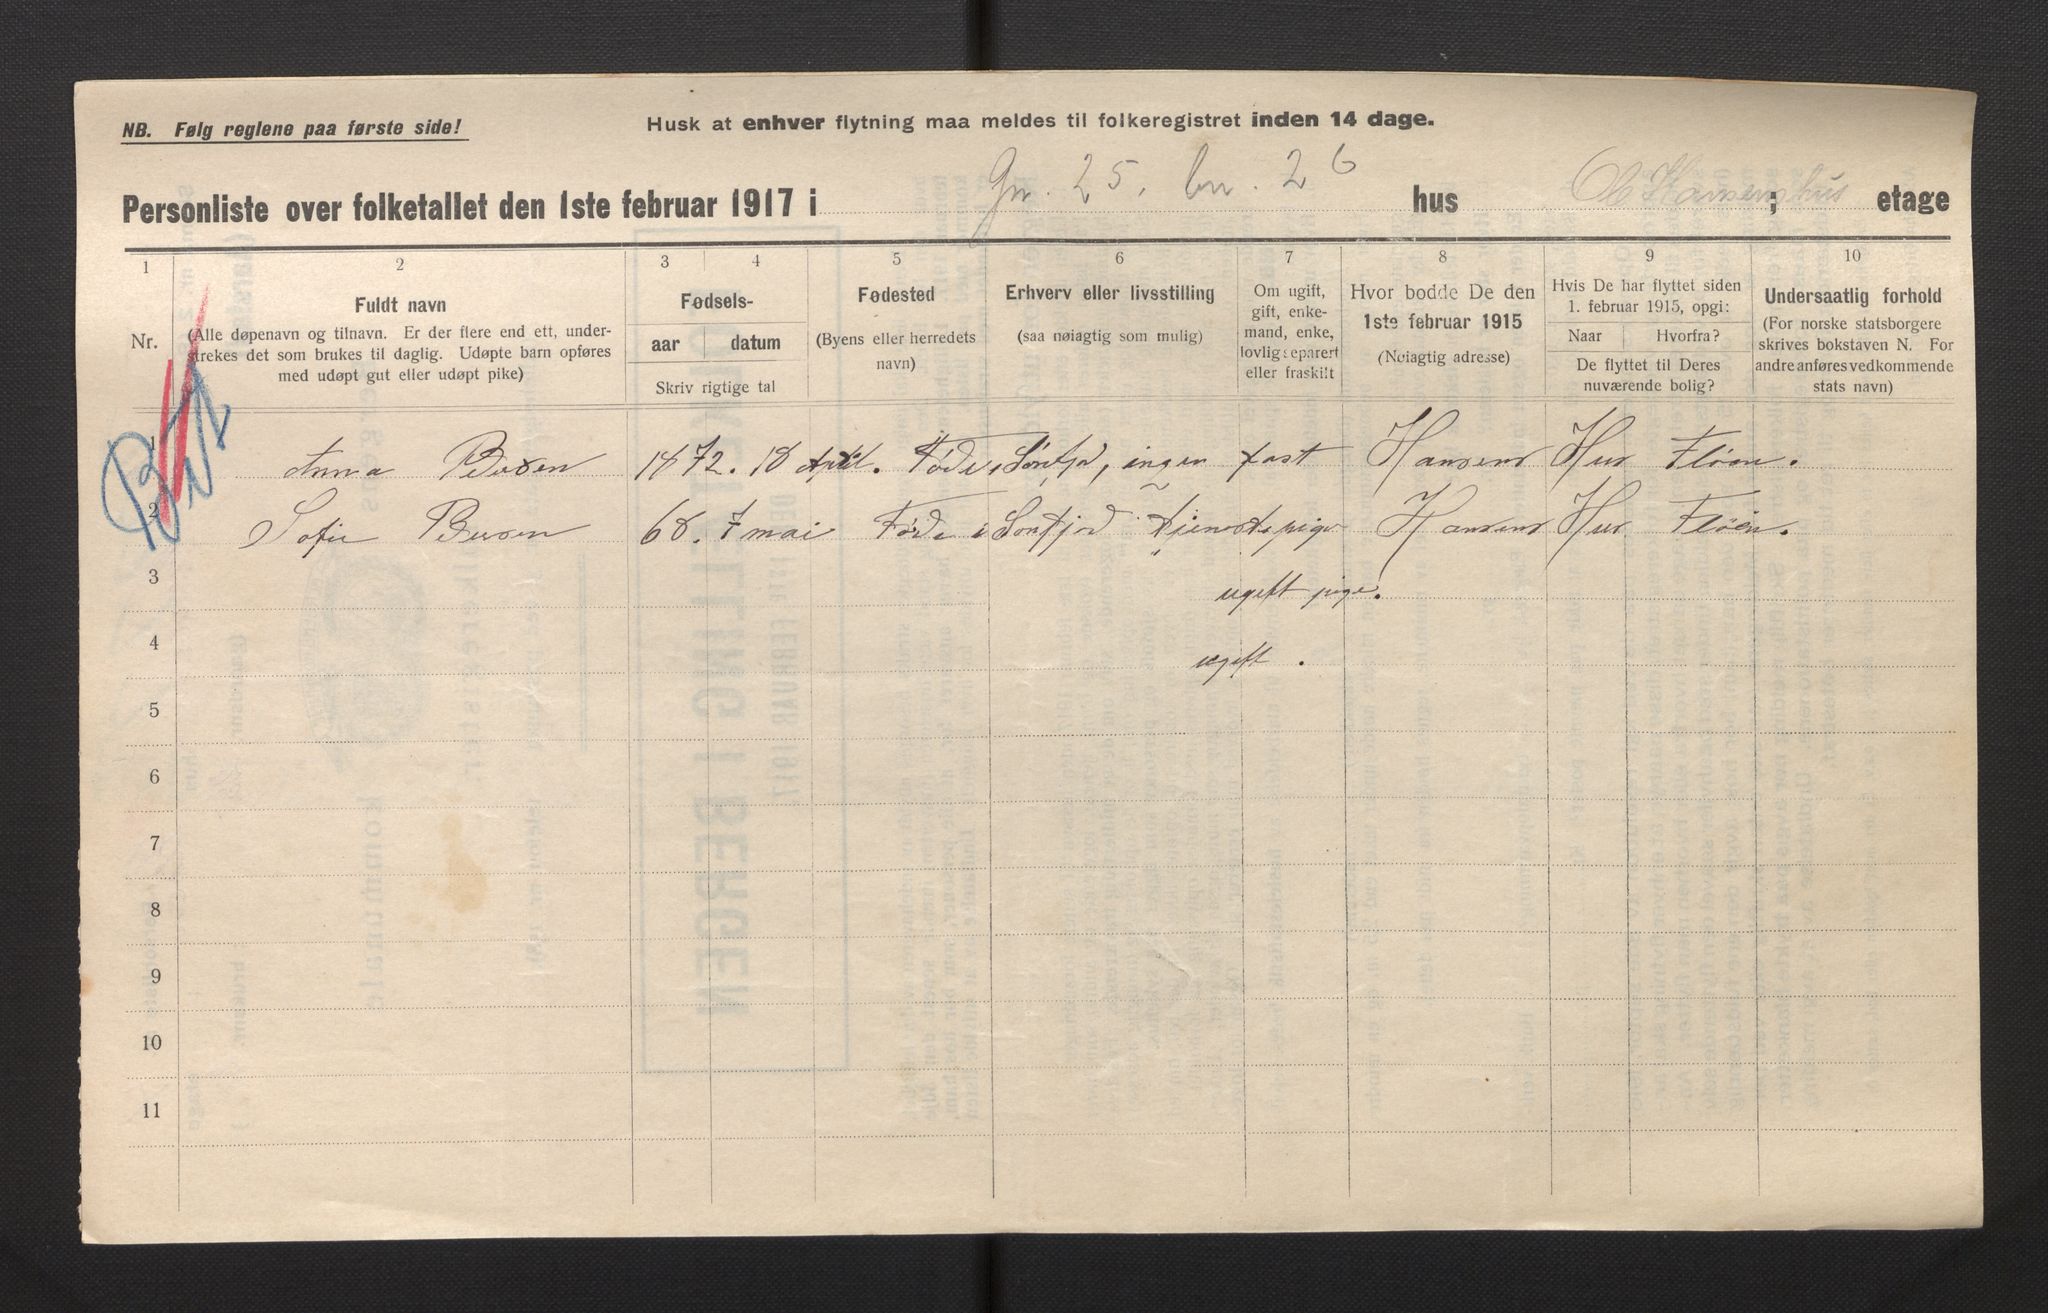 NB. Følg reglene paa første side!
Husk at enhver flytning maa meldes til folkeregistret inden 14 dage.
Personliste over folketallet den 1ste februar 1917 i Gn. 25, bn. 26 hus Hansens hus ; etage
1 2 3 4 5 6 7 8 9 10
Nr.
Fuldt navn
(Alle døpenavn og tilnavn. Er der flere end ett, under-
strekes det som brukes til daglig. Udøpte barn opføres
med udøpt gut eller udøpt pike)
Fødsels-
aar datum
Skriv rigtige tal
Fødested
(Byens eller herredets
navn)
Erhverv eller livsstilling
(saa nøiagtig som mulig)
Om ugift,
gift, enke-
mand, enke,
lovlig separert
eller fraskilt
Hvor bodde De den
1ste februar 1915
(Nøiagtig adresse)
Hvis De har flyttet siden
1. februar 1915, opgi:
Naar Hvorfra?
De flyttet til Deres
nuværende bolig?
Undersaatlig forhold
(For norske statsborgere
skrives bokstaven N. For
andre anføres vedkommende
stats navn)
1 Anna 1872. 18 April. Søntfj, ingen fast Hansens Hus Fløen.
2 Sofie 68. 7 mai Føde i Søntfjord Hansens Hus Fløen.
3 ugift pige.
4 ugift.
5
6
7
8
9
10
11